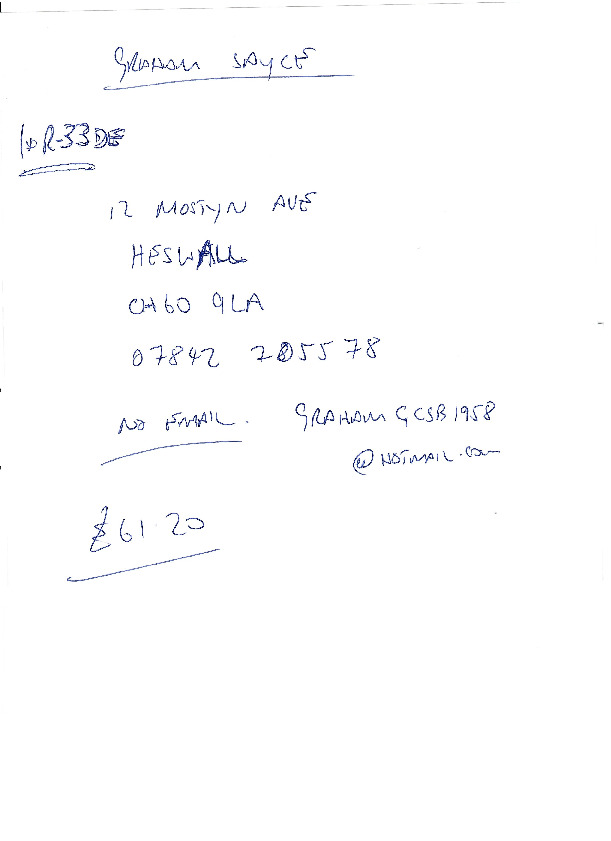 GRAHAM SAYCE
1x R-33DE
12 MOSTYN AVE
HESWALL
CH60 9LA
07842 705578
NO EMAIL. GRAHAMGCSB1958
@HOTMAIL.com
£61.20